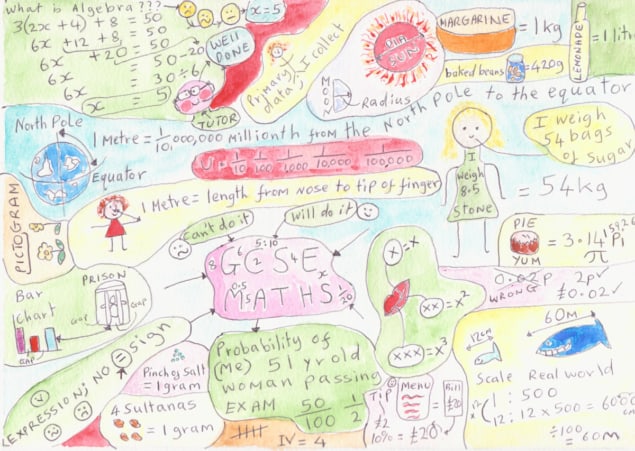 What is Algebra ???
3(2x+4) + 8 = 50
6x + 12 + 8 = 50
6x + 20 = 50
6x = 50-20
6x = 30÷6
x = 5
x = 5
WELL
DONE
TUTOR
Primary
data, I collect
SUN
MOON
Radius
MARGARINE
= 1kg
baked beans
= 420g
LEMONADE
North Pole
Equator
1 Metre = 1/10,000,000 millionth from the North Pole to the equator
U . 1/10 1/100 1/1000 1/10,000 1/100,000
1 Metre = length from nose to tip of finger
I weigh
54 bags
of Sugar
I
weigh
8.5
STONE
= 54kg
PICTOGRAM
Can't do it
Will do it
GCSE
MATHS
5:10
0.5
1/20
x = x
xx = x²
xxx = x³
PIE
YUM
= 3.14
Pi
π
0.02p
WRONG
2p✓
£0.02✓
Bar
Chart
GAP
PRISON
GAP
GAP
EXPRESSION; NO = sign
Pinch of salt
= 1 gram
4 Sultanas
= 1 gram
Probability of
(me) 51 yr old
woman passing
EXAM 50/100 1/2
IV = 4
Tip
£2
10% = £20
Menu
Bill
£20
12cm
60M
Scale Real world
1 : 500
12 : 12 × 500 = 6000 cm
÷100
= 60M